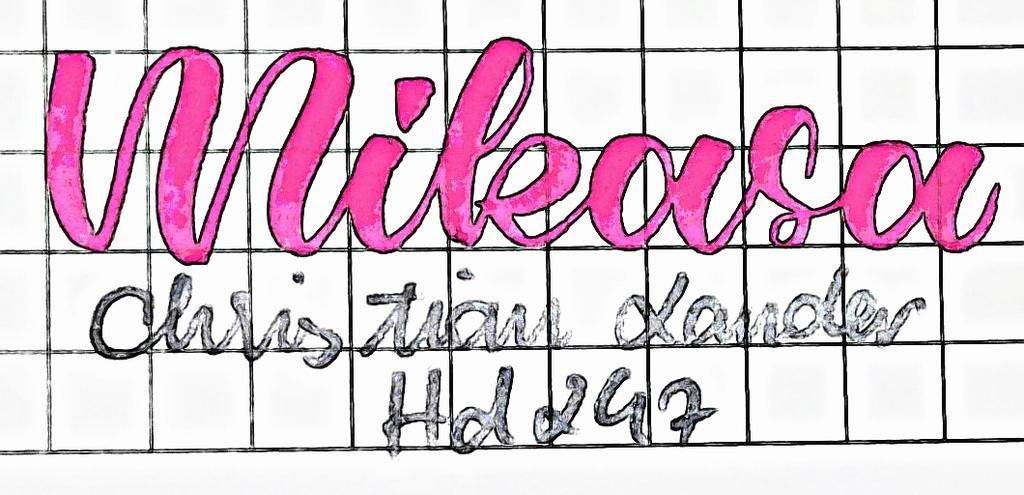 Mikasa
Christian Lander
Hd 247